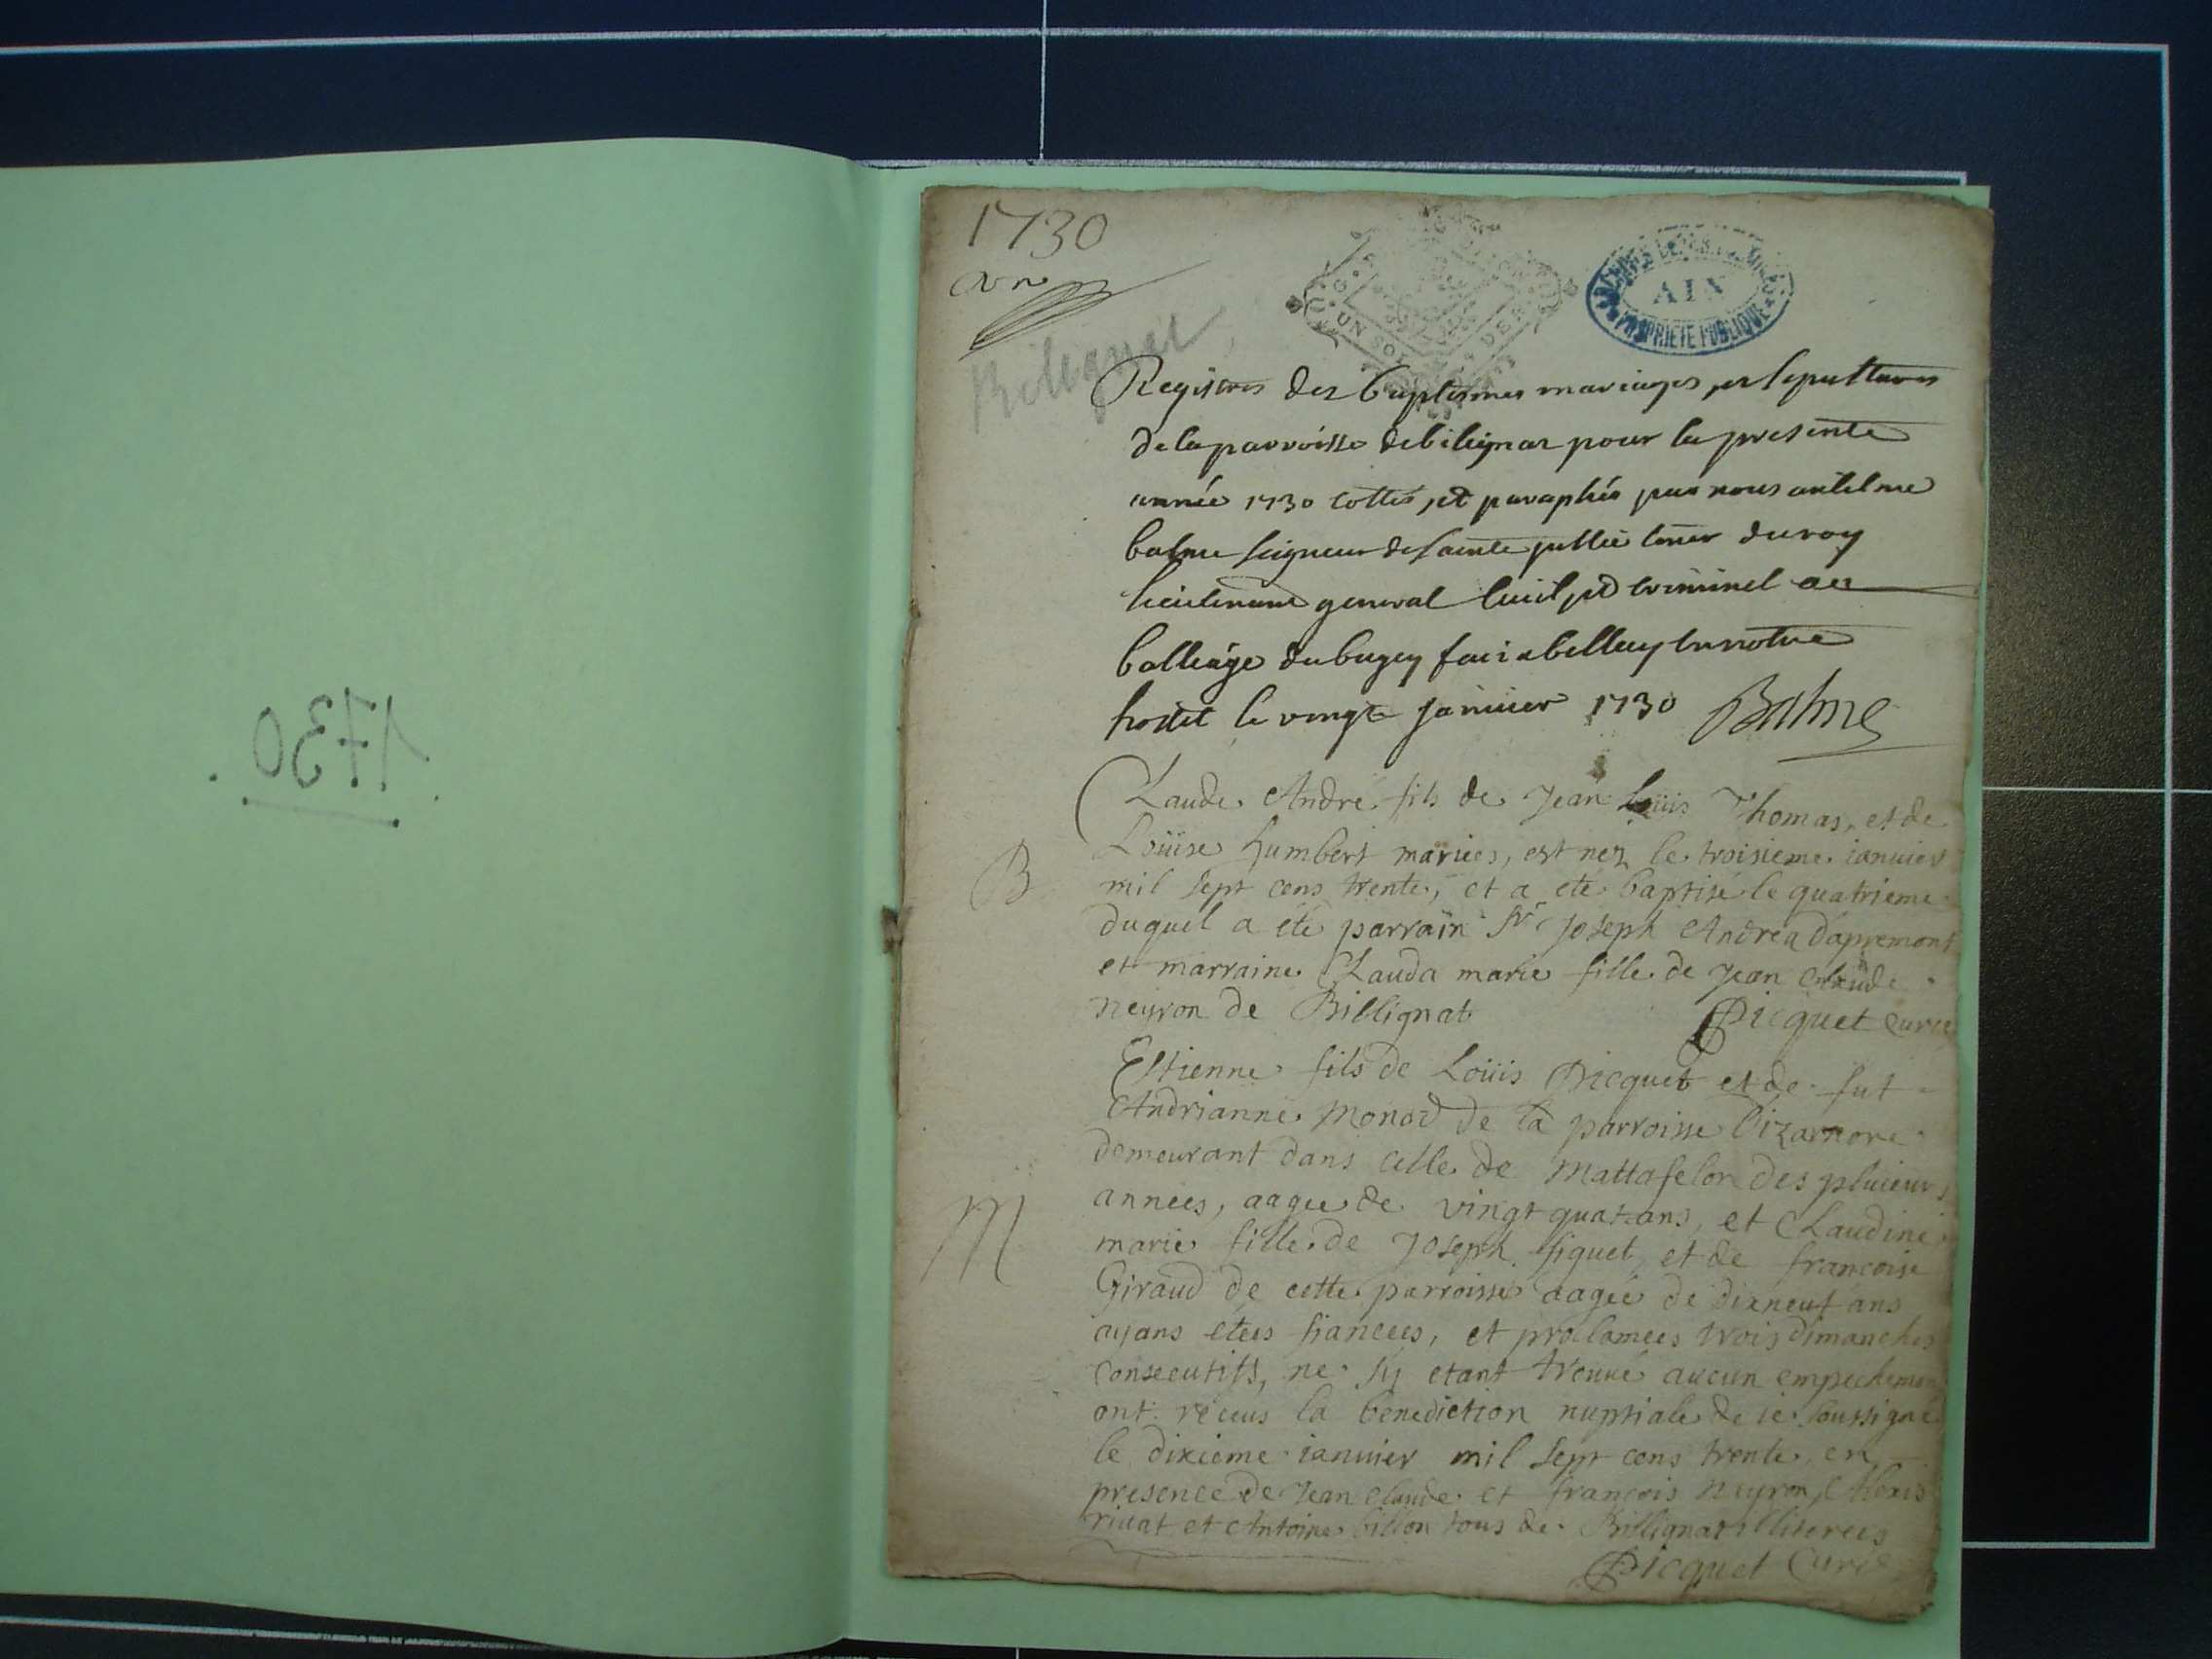 1730
1730
Billignat
UN SOL
AIX
PROPRIETE PUBLIQUE
Registres des baptesmes mariages et sepultures
de la parroisse de bilignat pour la presente
année 1730 cottés et paraphés par nous antelme
balme seigneur de sainte jullie du roy
lieutenant general civil et criminel au
balliage du bugey fait a belley en notre
hostel le vingt janvier 1730 Balme
Claude André fils de Jean Loüis Thomas, et de
B
Loüise humbert mariées, est nez le troisieme ianvier
mil sept cens trente, et a eté baptisé le quatrieme
duquel a eté parrain Sr Joseph Andréa d'apremont
et marraine Clauda marie fille de Jean claude
neyron de Billignat Picquet Curé
Estienne fils de Loüis Picquet et de fut
Andrianne Monod de la parroisse dizarnore
demeurant dans celle de Mattafelon des pluieurs
M
années, aagee de vingt quat. ans, et Claudine
marie fille de Joseph figuet et de francoise
Giraud de cette parroisse aagée de dixneuf ans
ayans etees fiancees, et proclamees trois dimanches
consecutifs, ne sy etant treuué aucun empechement
ont receus la benediction nuptiale de ie soussigné
le dixieme ianvier mil sept cens trente, en
presence de Jean claude et françois neyron,
riuat et Antoine billon tous de Billignat illiterees
Picquet Curé